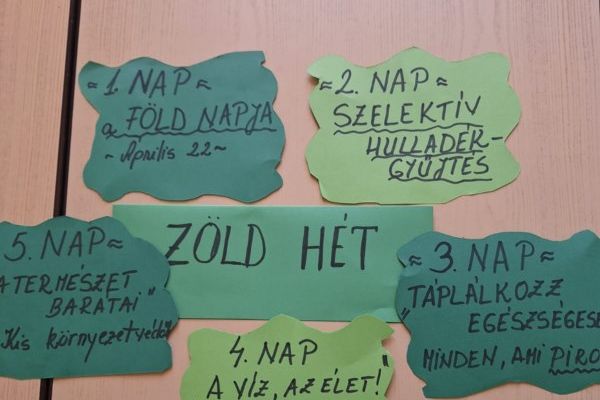 ≈ 1. NAP ≈
a FÖLD NAPJA
~ Április 22 ~
≈ 2. NAP ≈
SZELEKTÍV
HULLADÉK-
GYŰJTÉS
ZÖLD HÉT
5. NAP ≈
A TERMÉSZET
BARÁTAI"
Kis környezetvédő
≈ 3. NAP ≈
"TÁPLÁLKOZZ
EGÉSZSÉGESE
MINDEN, AMI PIRO
4. NAP
A VÍZ, AZ ÉLET!"